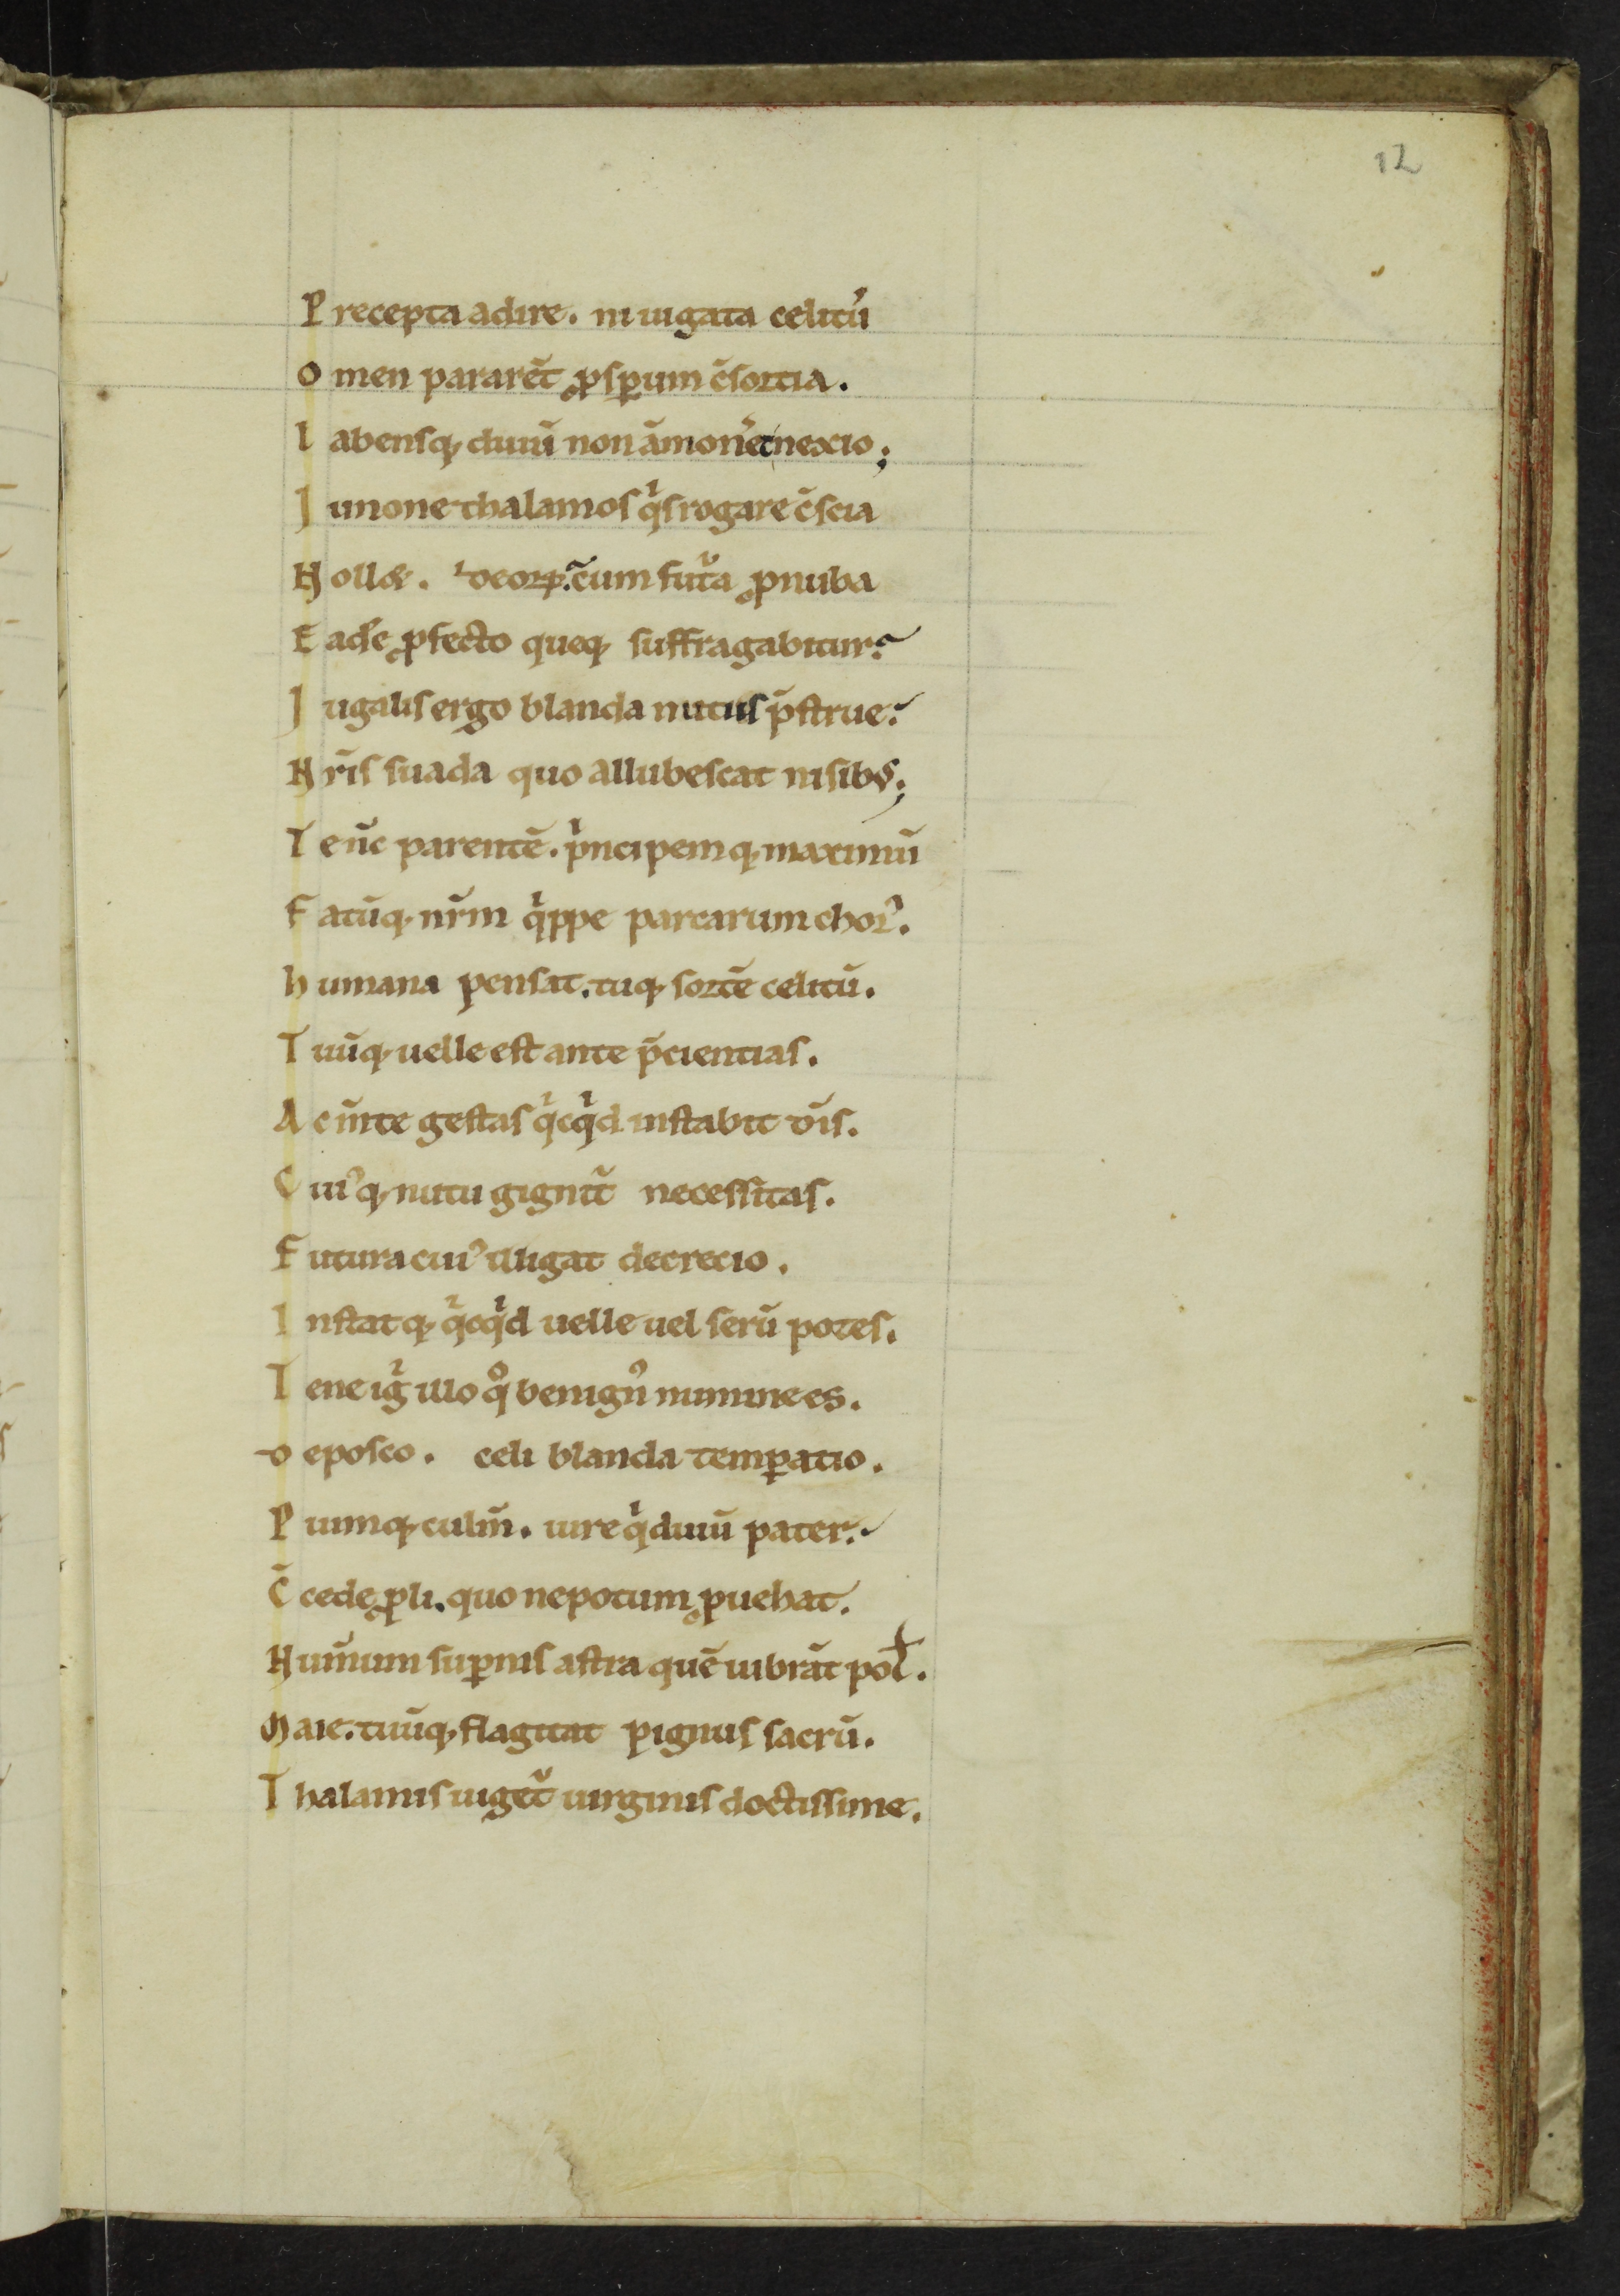 12
P recepta adire. ni iugata celitu᷒
O men pararēt ꝓsꝑum c̄sortia.
l abensq; diuū non āmon'et nexio;
J unone thalamos qͥs rogare c̄scia
N ollet. deoꝝ. cum futᷣa ꝓnuba
E ad'e ꝓfecto queq; suffragabitur?
J ugalis ergo blanda nutus p̄strue.
N r̄is suada quo allubescat nisibꝰ;
T e n̄c parentē. pͥncipemq; maximū
F atūq; nr̄m qͥppe parcarum chorꝰ.
h umana pensat. tuq; sortē celitū.
T uūq; uelle est ante p̄scientias.
A c m̄te gestas qͥcqͥd instabit dīs.
C uiꝰq; nutu gignitᷣ necessitas.
F utura cuiꝰ illigat decretio.
I nstatq; qͥcqͥd uelle uel serū potes.
T ene igͥ illo qͦ benignꝰ numine es.
D eposco. celi blanda temꝑatio.
P iumq; culm̄. iure qͥ diuū pater.
C̄ cede ꝓli. quo nepotum ꝓuehat.
N um̄um suꝑnis astra quē uibrāt pol̵.
M aie. tuūq; flagitat pignus sacrū.
T halamis iugetᷣ uirginis doctissime.